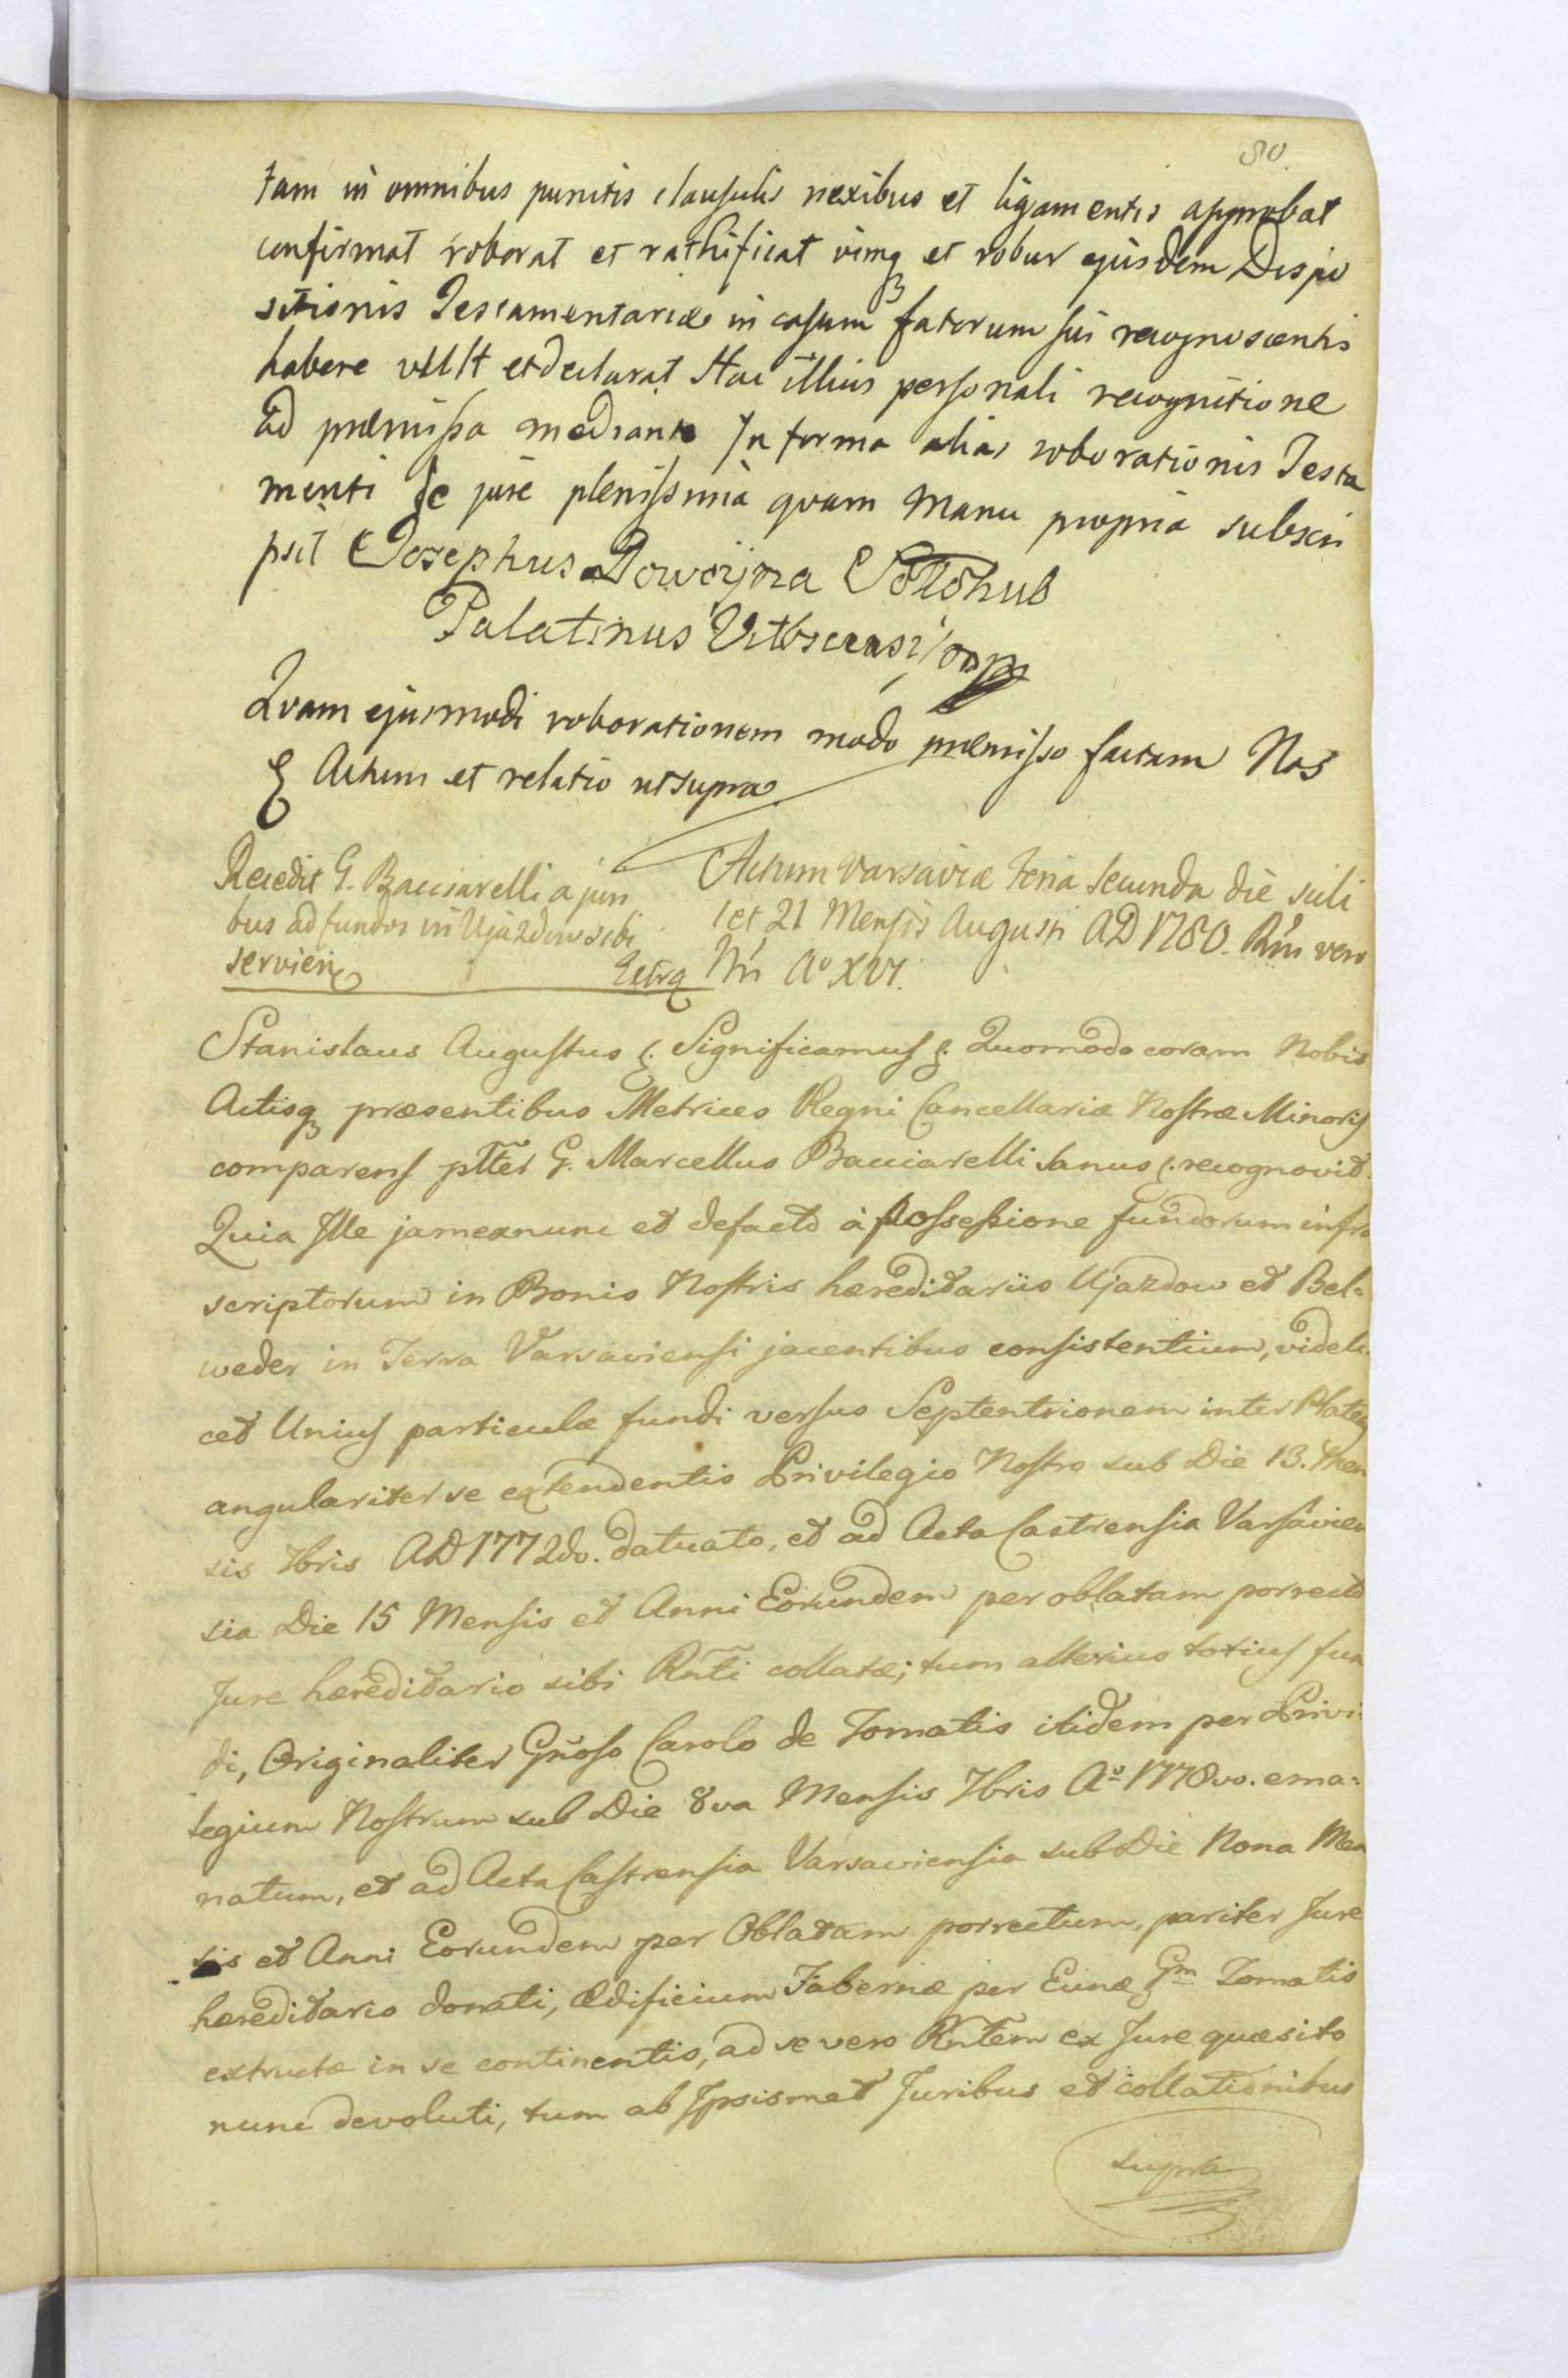 80.
tam in omnibus punctis clausulis nexibus et ligamentis approbat
confirmat roborat et rathificat vimq et robur ejusdem Dispo
sitionis Testamentariæ in casum fatorum sui recognoscentis
habere vult et declarat Hac illius personali recognitione
ad præmissa mediante In forma alias roborationis Testa
menti de jure plenissima quam manu propria subscri
psit Josephus Dowoyna Sołłohub
Palatinus Vitbscensis
Quam ejusmodi roborationem modo præmisso factam Nos
& Actum et relatio ut supra
Recedit G. Bacciarelli a juri
bus ad fundos in Ujazdow sibi
servien
Actum Varsaviæ Feria Secunda die scili
cet 21 Mensis Augusti AD 1780. Rni vero
Nri Aº XVI.
Stanislaus Augustus &. Significamus &. Quomodo coram Nobis
Actisq præsentibus Metrices Regni Cancellariæ Nostræ Minoris
comparens plter G. Marcellus Bacciarelli Sanus &. recognovit.
Quia Ille jam ex nunc et de facto à possessione fundorum infra
scriptorum in Bonis Nostris hæreditariis Ujazdow et Bel-
weder in Terra Varsaviensi jacentibus consistentium, videli
cet Unius particulæ fundi versus Septentrionem inter Plateas
angulariter se extendentis Privilegio Nostro sub Die 13. Men
sis Xbris AD 1772do. datuato, et ad Acta Castrensia Varsavien
sia Die 15 Mensis et Anni Eorundem per oblatam porrecto
Jure hæreditario sibi Rnti collatæ; tum alterius totius fun
di, Originaliter Gñoso Carolo de Tomatis itidem per Privi-
legium Nostrum sub Die 8va Mensis Xbris Aº 1778vo. ema-
natum, et ad Acta Castrensia Varsaviensia sub Die Nona Men
sis et Anni Eorundem per Oblatam porrectum, pariter Jure
hæreditario donati, Ædificium Tabernæ per Eund Gm Tomatis
extructæ in se continentis, ad se vero Rntem ex Jure quæsito
nunc devoluti, tum ab Ipsismet Juribus et collationibus
supra